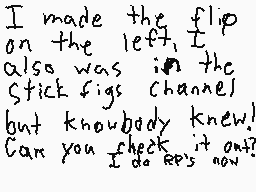 I made the flip
on the left, I
also was in the
stick figs channel
but knowbody knew!
Can you check it out?
I do RP's now